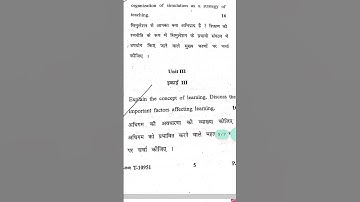 organization of simulation as a strategy of
teaching. 16
सिमुलेशन से आपका क्या अभिप्राय है ? शिक्षण की
रणनीति के रूप में सिमुलेशन के प्रभावी संगठन में
उपयोग किए जाने वाले मुख्य चरणों पर चर्चा
कीजिए ।
Unit III
इकाई III
Explain the concept of learning. Discuss the
important factors affecting learning.
अधिगम की अवधारणा की व्याख्या कीजिए
अधिगम को प्रभावित करने वाले
पर चर्चा कीजिए ।
T-10951 5